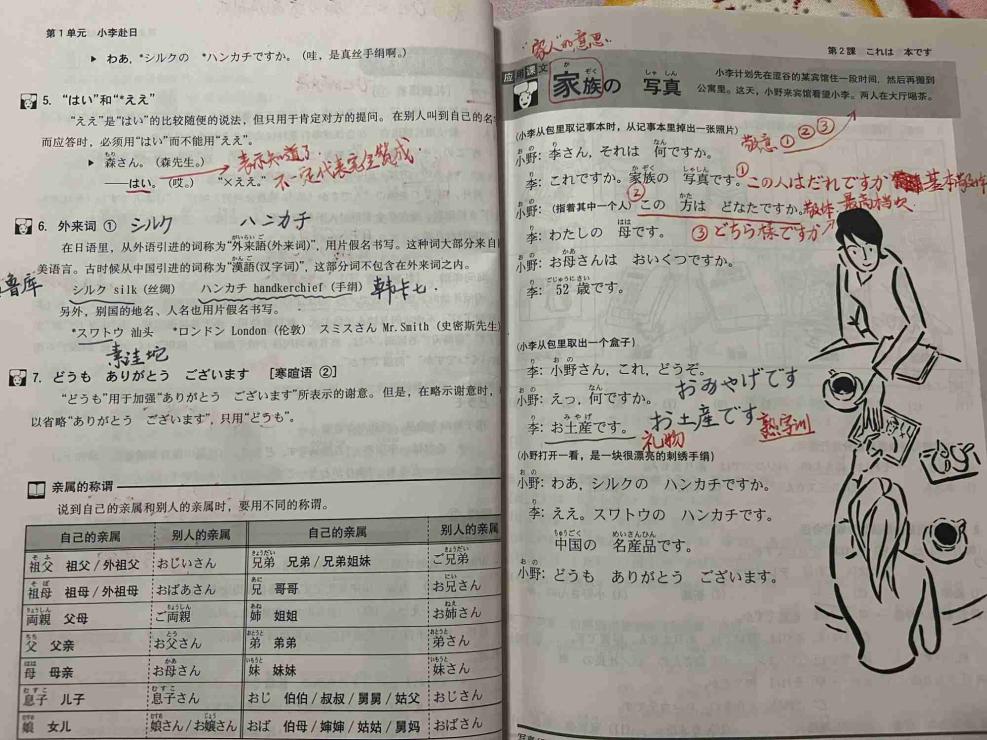 第1单元 小李赴日
▶ わあ，*シルクの *ハンカチですか。(哇，是真丝手绢啊。)
5. “はい”和“*ええ”
“ええ”是“はい”的比较随便的说法，但只用于肯定对方的提问。在别人叫到自己的名字
而应答时，必须用“はい”而不能用“ええ”。
▶ 森さん。(森先生。) 表示知道了
——はい。(哎。) “×ええ。” 不一定代表完全赞成
6. 外来词 ① シルク ハンカチ
在日语里，从外语引进的词称为“外来語(外来词)”，用片假名书写。这种词大部分来自
美语言。古时候从中国引进的词称为“漢語(汉字词)”，这部分词不包含在外来词之内。
シルク silk (丝绸) ハンカチ handkerchief (手绢) 韩卡七
鲁库
另外，别国的地名、人名也用片假名书写。
*スワトウ 汕头 *ロンドン London (伦敦) スミスさん Mr. Smith (史密斯先生)
7. どうも ありがとう ございます [寒暄语 ②]
“どうも”用于加强“ありがとう ございます”所表示的谢意。但是，在略示谢意时，
以省略“ありがとう ございます”，只用“どうも”。
亲属的称谓
说到自己的亲属和别人的亲属时，要用不同的称谓。
自己的亲属 别人的亲属 自己的亲属 别人的亲属
祖父 祖父/外祖父 おじいさん 兄弟 兄弟/兄弟姐妹 ご兄弟
祖母 祖母/外祖母 おばあさん 兄 哥哥 お兄さん
両親 父母 ご両親 姉 姐姐 お姉さん
父 父亲 お父さん 弟 弟弟 弟さん
母 母亲 お母さん 妹 妹妹 妹さん
息子 儿子 息子さん おじ 伯伯/叔叔/舅舅/姑父 おじさん
娘 女儿 娘さん/お嬢さん おば 伯母/婶婶/姑姑/舅妈 おばさん
第2課 これは 本です
“家人”的意思
应用课文 家族の 写真
小李计划先在涩谷的某宾馆住一段时间，然后再搬到
公寓里。这天，小野来宾馆看望小李。两人在大厅喝茶。
(小李从包里取记事本时，从记事本里掉出一张照片)
敬意①②③
小野：李さん，それは 何ですか。
李：これですか。家族の 写真です。
①この人はだれですか 基本
小野：(指着其中一个人) ②この 方は どなたですか。敬体 最高档次
李：わたしの 母です。
③どちら様ですか
小野：お母さんは おいくつですか。
李：52歳です。
(小李从包里取出一个盒子)
李：小野さん，これ，どうぞ。
おみやげです
小野：えっ，何ですか。
李：お土産です。 お土産です 熟字训
礼物
(小野打开一看，是一块很漂亮的刺绣手绢)
小野：わあ，シルクの ハンカチですか。
李：ええ。スワトウの ハンカチです。
中国の 名産品です。
小野：どうも ありがとう ございます。